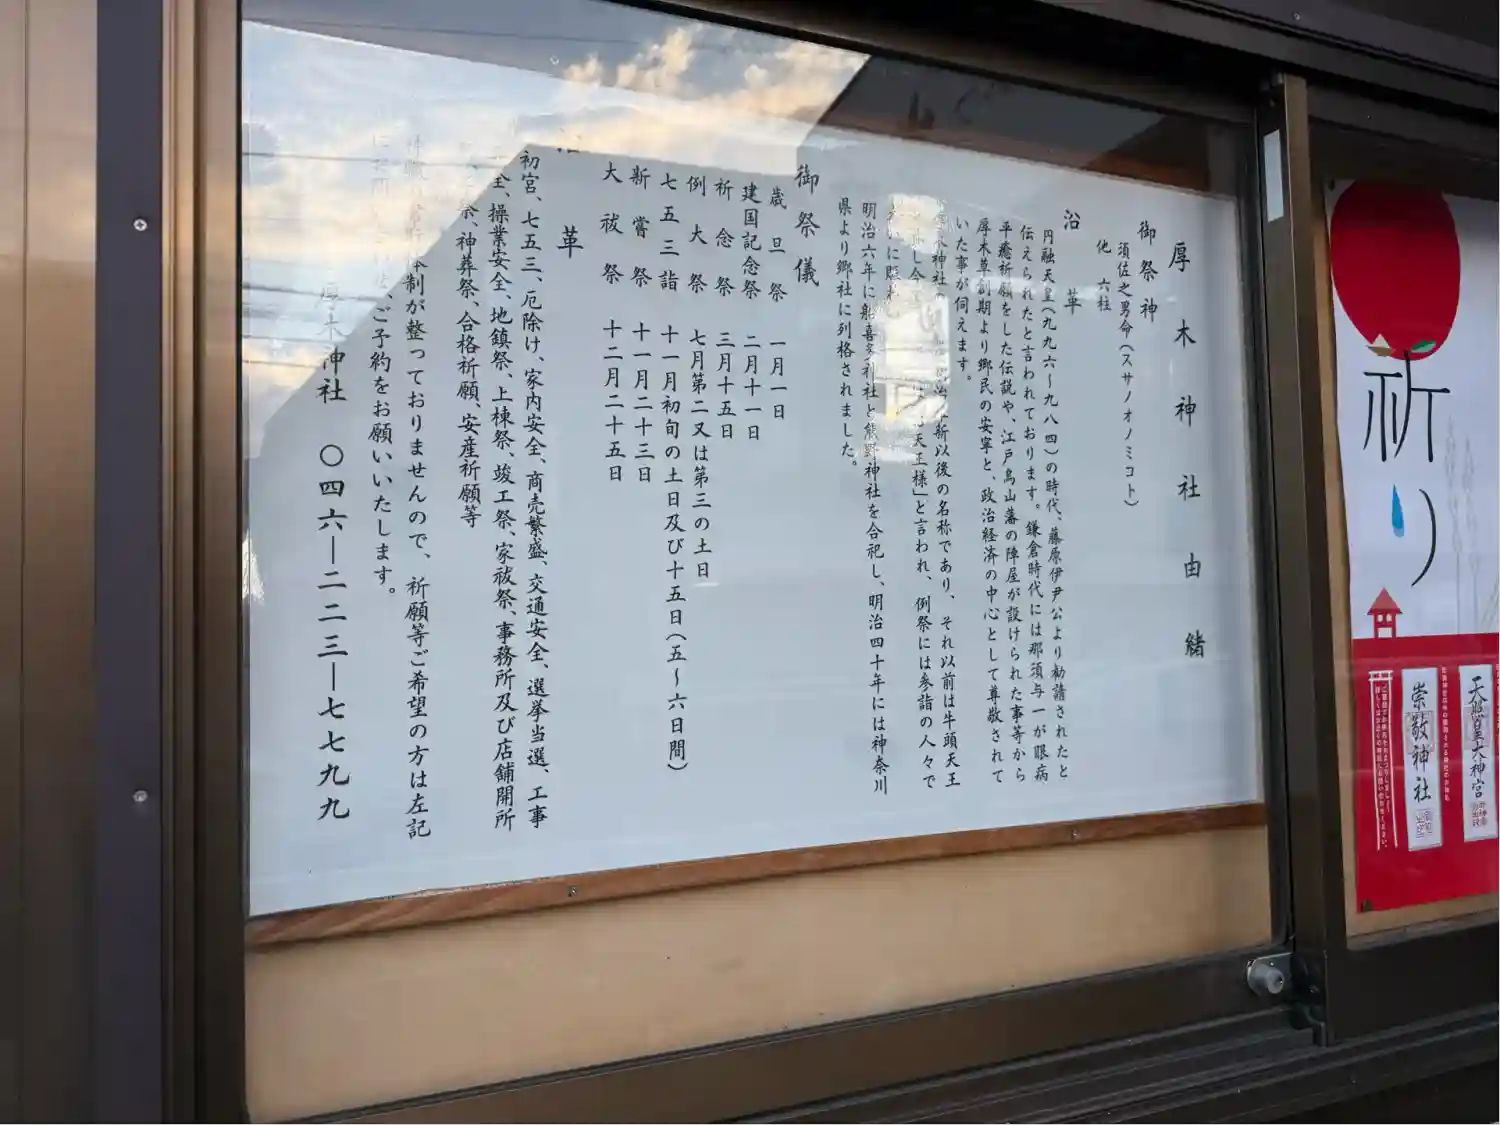 厚木神社由緒
御祭神
須佐之男命(スサノオノミコト)
他 六柱
沿革
円融天皇(九九六〜九八四)の時代、藤原伊尹公より勧請されたと
伝えられたと言われております。鎌倉時代には那須与一が眼病
平癒祈願をした伝説や、江戸烏山藩の陣屋が設けられた事等から
厚木草創期より郷民の安寧と、政治経済の中心として尊敬されて
いた事が伺えます。
木神社 新以後の名称であり、それ以前は牛頭天王
し今 天王様」と言われ、例祭には参詣の人々で
に賑
明治六年に船喜多神社と熊野神社を合祀し、明治四十年には神奈川
県より郷社に列格されました。
御祭儀
歳旦祭 一月一日
建国記念祭 二月十一日
祈念祭 三月十五日
例大祭 七月第二又は第三の土日
七五三詣 十一月初旬の土日及び十五日(五〜六日間)
新嘗祭 十一月二十三日
大祓祭 十二月二十五日
沿革
初宮、七五三、厄除け、家内安全、商売繁盛、交通安全、選挙当選、工事
全、操業安全、地鎮祭、上棟祭、竣工祭、家祓祭、事務所及び店舗開所
祭、神葬祭、合格祈願、安産祈願等
体制が整っておりませんので、祈願等ご希望の方は左記
、ご予約をお願いいたします。
厚木神社 〇四六―二二三―七七九九
祈り
天照皇大神宮
崇敬神社